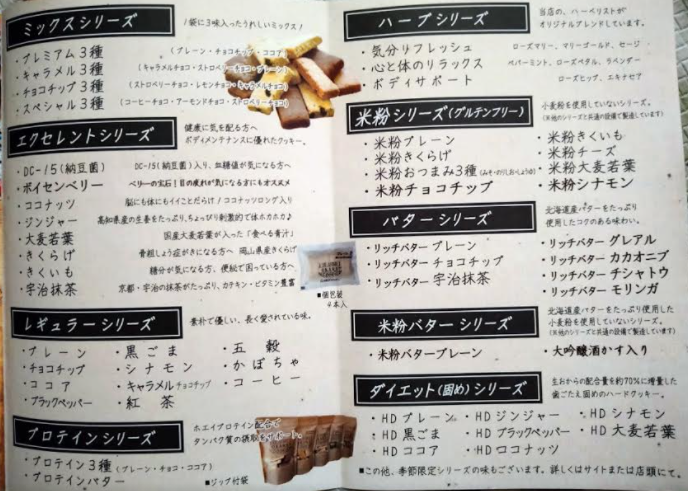 ミックスシリーズ
1袋に3味入ったうれしいミックス！
・プレミアム3種 (プレーン・チョコチップ・ココア)
・キャラメル3種 (キャラメルチョコ・ストロベリーチョコ・プレーン)
・チョコチップ3種 (ストロベリーチョコ・レモンチョコ・キャラメルチョコ)
・スペシャル3種 (コーヒーチョコ・アーモンドチョコ・ストロベリーチョコ)
エクセレントシリーズ
健康に気を配る方へ
ボディメンテナンスに優れたクッキー。
・DC-15(納豆菌) DC-15(納豆菌)入り、血糖値が気になる方へ
・ボイセンベリー ベリーの宝石！目の疲れが気になる方にもオススメ
・ココナッツ 脳にも体にもイイことだらけ！ココナッツロング入り
・ジンジャー 高知県産の生姜をたっぷり、ちょっぴり刺激的で体ホカホカ♪
・大麦若葉 国産大麦若葉が入った「食べる青汁」
・きくらげ 骨粗しょう症がきになる方へ 岡山県産きくらげ
・きくいも 糖分が気になる方、便秘で困っている方へ
・宇治抹茶 京都・宇治の抹茶がたっぷり、カテキン・ビタミン豊富
レギュラーシリーズ
素朴で優しい、長く愛されている味。
・プレーン ・黒ごま ・五穀
・チョコチップ ・シナモン ・かぼちゃ
・ココア ・キャラメルチョコチップ ・コーヒー
・ブラックペッパー ・紅茶
プロテインシリーズ
ホエイプロテイン配合で
タンパク質の摂取をサポート。
・プロテイン3種 (プレーン・チョコ・ココア)
・プロテインバター
■ジップ付袋
■個包装
9本入
ハーブシリーズ
当店の、ハーバリストが
オリジナルブレンドしています。
・気分リフレッシュ ローズマリー、マリーゴールド、セージ
・心と体のリラックス ペパーミント、ローズペタル、ラベンダー
・ボディサポート ローズヒップ、エキナセア
米粉シリーズ(グルテンフリー)
小麦粉を使用していないシリーズ。
(※他のシリーズと共通の設備で製造しています)
・米粉プレーン ・米粉きくいも
・米粉きくらげ ・米粉チーズ
・米粉おつまみ3種(みそ・のりしお・しょうゆ) ・米粉大麦若葉
・米粉チョコチップ ・米粉シナモン
バターシリーズ
北海道産バターをたっぷり
使用したコクのある味わい。
・リッチバター プレーン ・リッチバター グレアル
・リッチバター チョコチップ ・リッチバター カカオニブ
・リッチバター 宇治抹茶 ・リッチバター チシャトウ
・リッチバター モリンガ
米粉バターシリーズ
北海道産バターをたっぷり使用した
小麦粉を使用していないシリーズ。
(※他のシリーズと共通の設備で製造しています)
・米粉バタープレーン ・大吟醸酒かす入り
ダイエット(固め)シリーズ
生おからの配合量を約70%に増量した
歯ごたえ固めのハードクッキー。
・HD プレーン ・HD ジンジャー ・HD シナモン
・HD 黒ごま ・HD ブラックペッパー ・HD 大麦若葉
・HD ココア ・HD ココナッツ
■この他、季節限定シリーズの味もございます。詳しくはサイトまたは店頭にて。